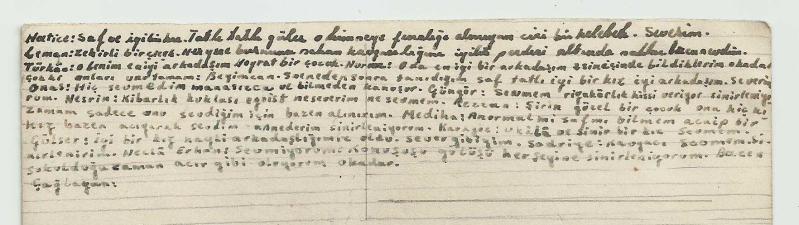 Hatice: Saf ve iyilik. Tatlı tatlı güler o kimseye fenalığı olmıyan cici bir kelebek. Severim.
Leman: Zehirli bir çiçek. Herşeye burnunu sokan iyilik perdesi altında
Türkân: O benim en iyi arkadaşım Hoyrat bir çocuk. Nurma: Oda en iyi bir arkadaşım esinisinde bildiklerim okadar
çoktur onları Beyimcan: Seneden sonra tanıdığım saf tatlı iyi bir kız iyi arkadaşım. Severim
Onas: Hiç sevmedim manasızca ve bilmeden konuşur. Güngör: Sevmem riyakârlık hissi veriyor sinirleniyo
rum. Nesrin: Kibarlık kuklası egoist neseverim nesevmem. Şirin güzel bir çocuk ona hiç ki
zamam sadece onu sevdiğim için bazen alınırım. Mediha: Anormal mi saf mı bilmem acaip bir
kız bazen acıyarak sevdim sinirleniyorum. ukâlâ ve sinir bir kız Sevmem.
Gülser: iyi bir kız arkadaşlığımız oldu sever gibiyim. Sadriye: Sevmem. Si-
nirlenirim. Neclâ Erkan: Sevmiyorum. Konuşuşu gülüşü herşeyine sinirleniyorum. Bazen
sokulduğu zaman acır gibi oluyorum okadar.
Çağlayan: